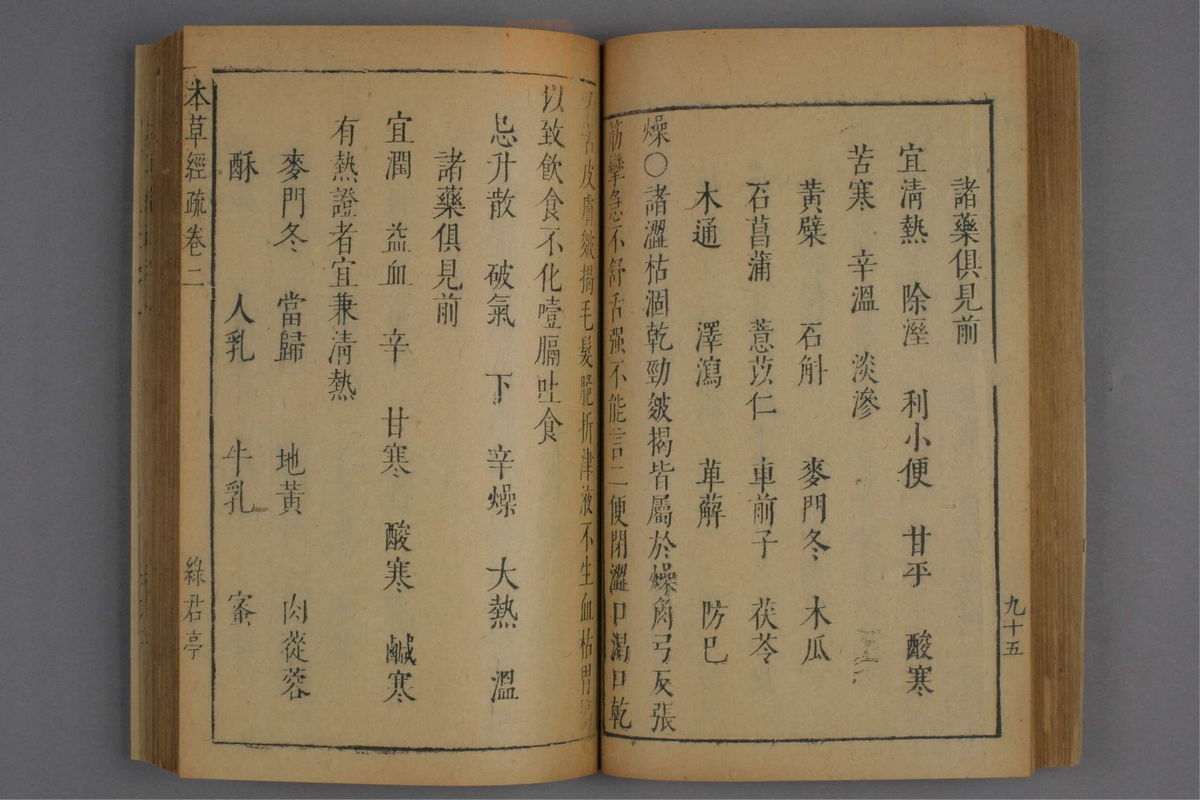 諸藥俱見前
宜淸熱 除溼 利小便 甘平 酸寒
苦寒 辛溫 淡滲
黃蘗 石斛 麥門冬 木瓜
石菖蒲 薏苡仁 車前子 茯苓
木通 澤瀉 萆薢 防巳
燥〇諸澀枯涸乾勁皴揭皆屬於燥角弓反張
筋攣急不舒舌强不能言二便閉澀口渴口乾
舌皮膚皴揭毛髮脆折津液不生血枯胃
以致飲食不化噎膈吐食
忌升散 破氣 下 辛燥 大熱 溫
諸藥俱見前
宜潤 益血 辛 甘寒 酸寒 鹹寒
有熱證者宜兼淸熱
麥門冬 當歸 地黃 肉蓯蓉
酥 人乳 牛乳 蜜
本草經疏卷二 綠君亭
九十五